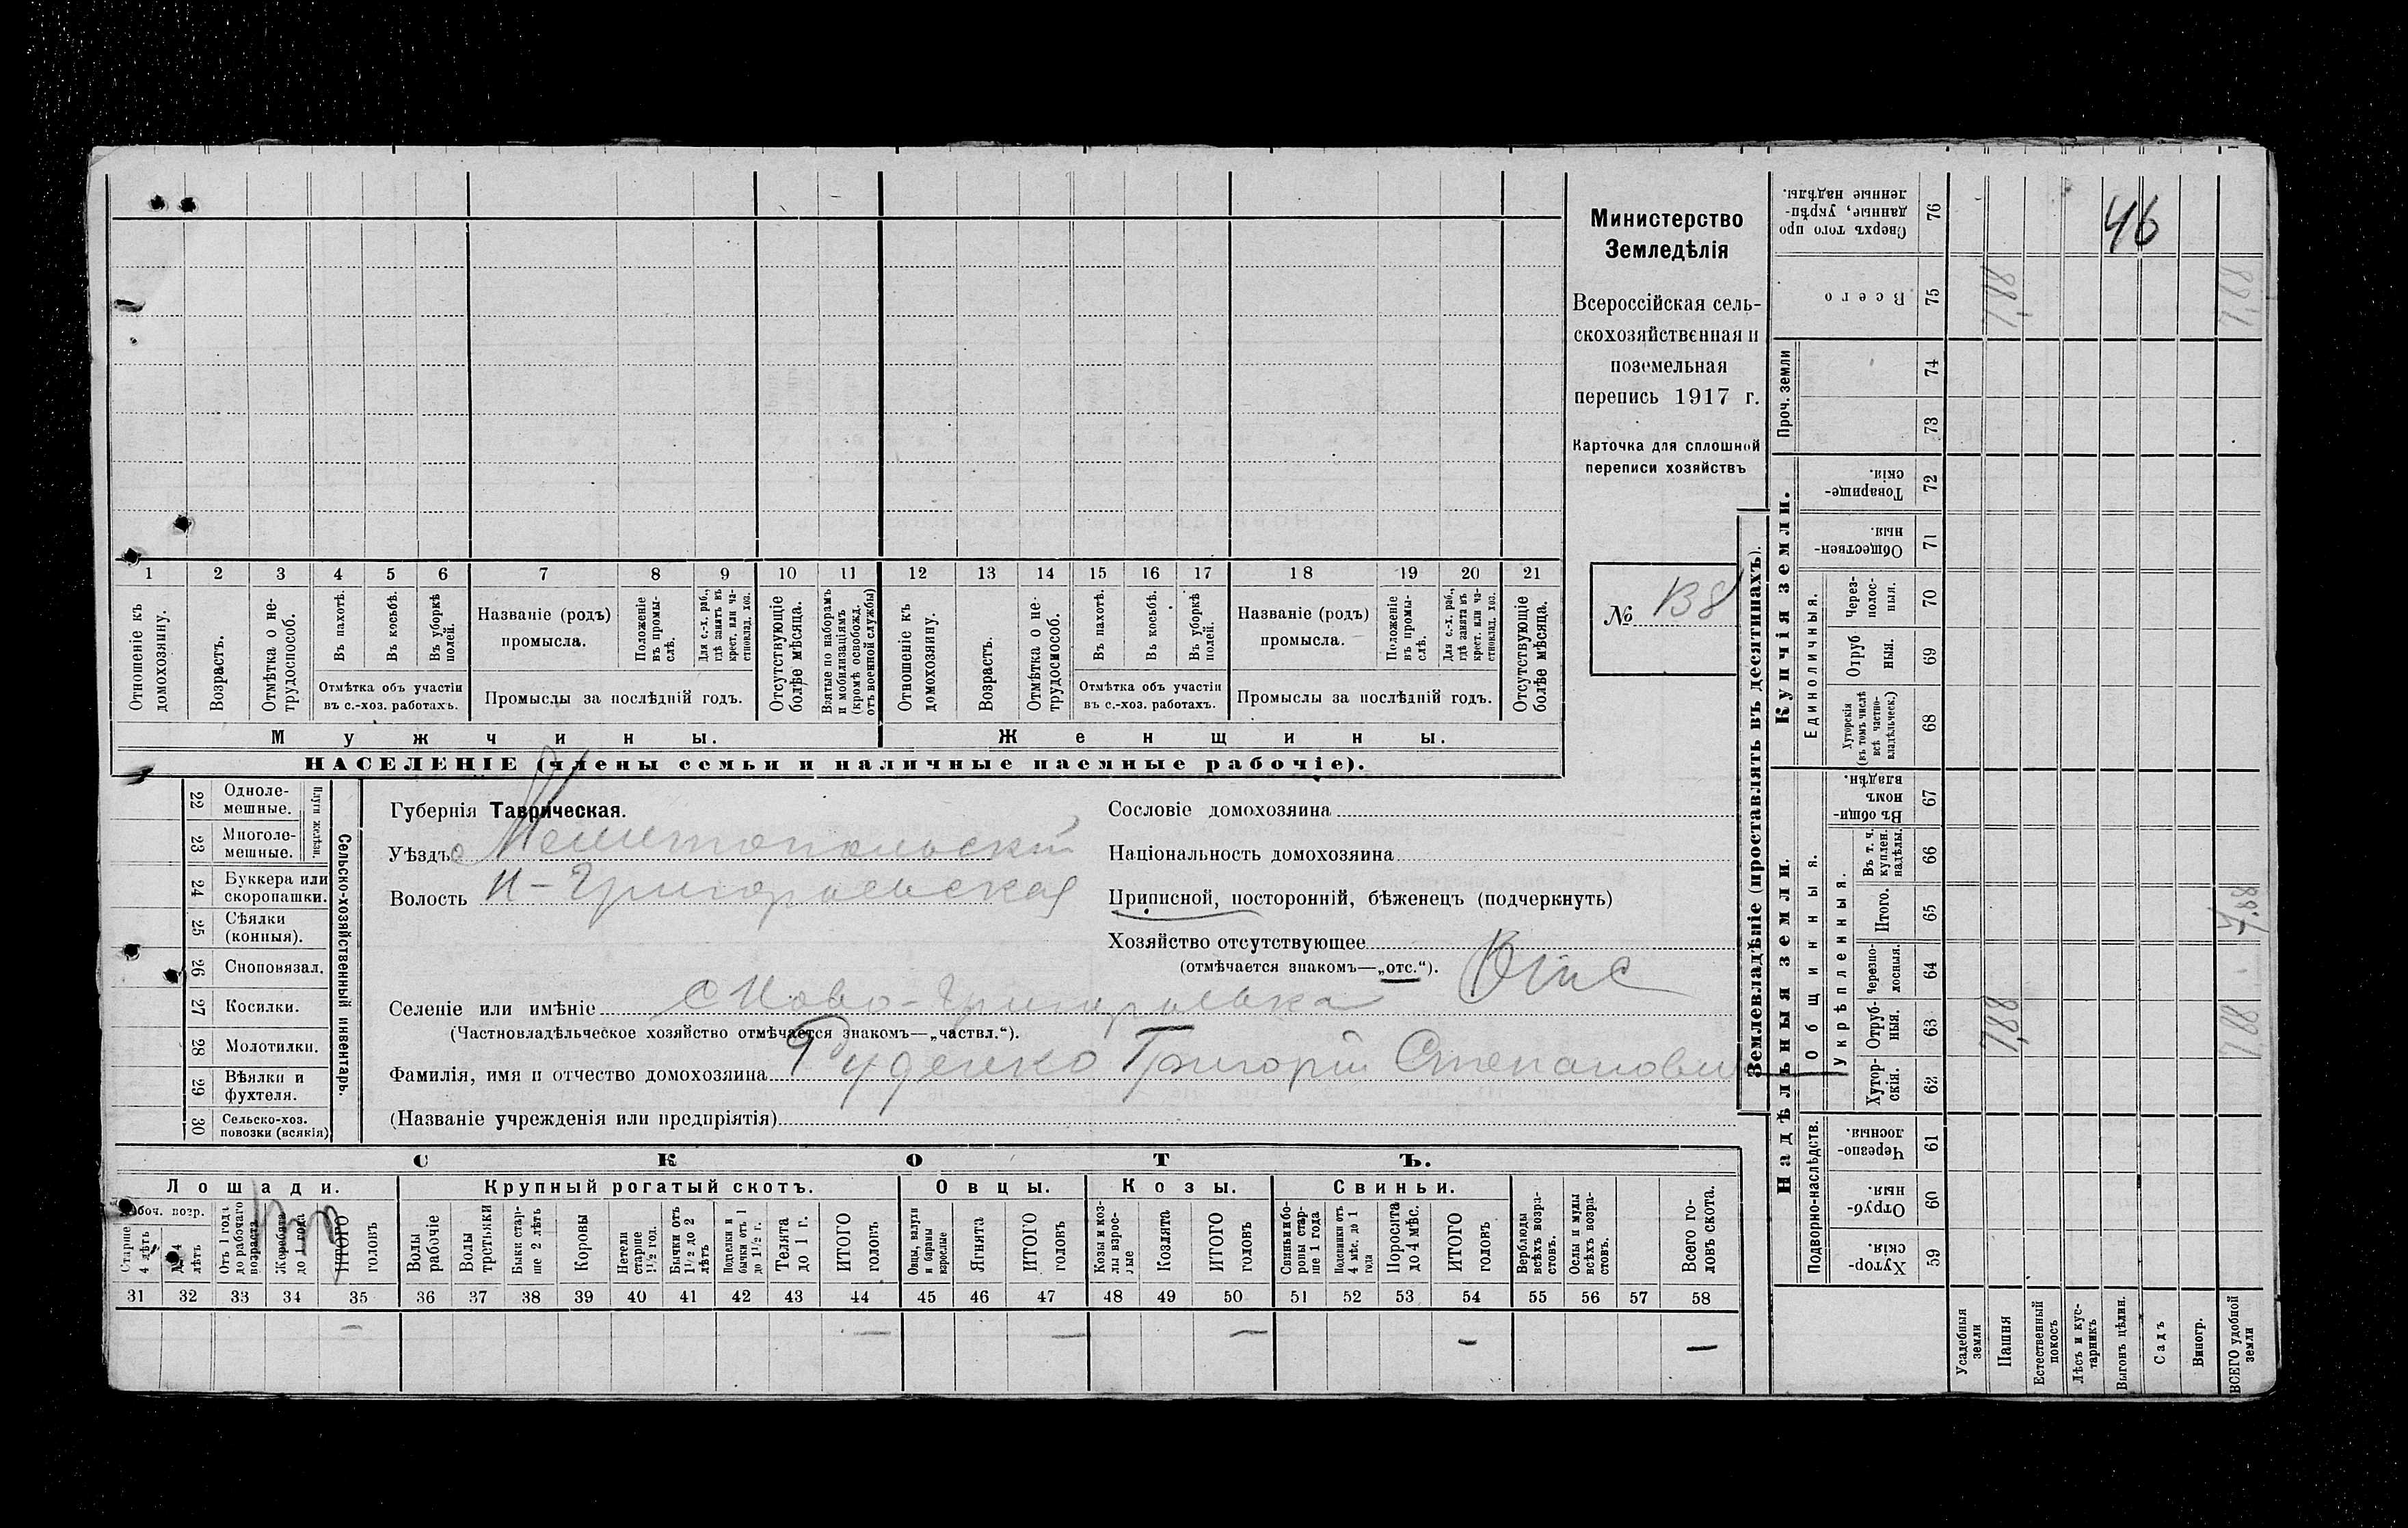 Министерство
Земледѣлія
Всероссійская сель-
скохозяйственная и
поземельная
перепись 1917 г.
Карточка для сплошной
переписи хозяйствъ
№ В8
1 2 3 4 5 6 7 8 9 10 11 12 13 14 15 16 17 18 19 20 21
Отношеніе къ домохозяину.
Возрастъ.
Отмѣтка о не-трудоспособ.
Въ пахотѣ.
Въ косьбѣ.
Въ уборкѣ полей.
Отмѣтка объ участіи
въ с.-хоз. работахъ.
Названіе (родъ)
промысла.
Положеніе въ промы-слѣ.
Для с.-х. раб., гдѣ занятъ въ крест. или ча-стновлад. хоз.
Промыслы за послѣдній годъ.
Отсутствующіе болѣе мѣсяца.
Взятые по наборамъ и мобилизаціямъ (кромѣ освобожд. отъ военной службы)
Отношеніе къ домохозяину.
Возрастъ.
Отмѣтка о не-трудоспособ.
Въ пахотѣ.
Въ косьбѣ.
Въ уборкѣ полей.
Отмѣтка объ участіи
въ с.-хоз. работахъ.
Названіе (родъ)
промысла.
Положеніе въ промы-слѣ.
Для с.-х. раб., гдѣ занята въ крест. или ча-стновлад. хоз.
Промыслы за послѣдній годъ.
Отсутствующіе болѣе мѣсяца.
Мужчины.
Женщины.
НАСЕЛЕНІЕ (члены семьи и наличные наемные рабочіе).
22 Одноле-мешные.
23 Многоле-мешные.
Плуги желѣзн.
24 Буккера или скоропашки.
25 Сѣялки (конныя).
26 Сноповязал.
27 Косилки.
28 Молотилки.
29 Вѣялки и фухтеля.
30 Сельско-хоз. повозки (всякія)
Сельско-хозяйственный инвентарь.
Губернія Таврическая.
Уѣздъ Мелитопольскій
Волость Н-Григорьевская
Селеніе или имѣніе с Ново-Григорьевка
(Частновладѣльческое хозяйство отмѣчается знакомъ—„частвл.“).
Фамилія, имя и отчество домохозяина Руденко Григорій Степанови
(Названіе учрежденія или предпріятія)
Сословіе домохозяина
Національность домохозяина
Приписной, посторонній, бѣженецъ (подчеркнуть)
Хозяйство отсутствующее Отс
(отмѣчается знакомъ—„отс.“).
СКОТЪ.
Лошади.
Крупный рогатый скотъ.
Овцы.
Козы.
Свиньи.
Старше 4 лѣтъ
лѣтъ
Отъ 1 года до рабочаго возраста
Жеребята до 1 года
ИТОГО головъ
Волы рабочіе
Волы третьяки
Быки стар-ше 2 лѣтъ
Коровы
Нетели старше 1½ год.
Бычки отъ 1½ до 2 лѣтъ
Подтелки и бычки отъ 1 до 1½ г.
Телята до 1 г.
ИТОГО головъ
Овцы, валухи и бараны взрослые
Ягнята
ИТОГО головъ
Козы и коз-лы взрос-лые
Козлята
ИТОГО головъ
Свиньи и бо-ровы стар-ше 1 года
Подсвинки отъ 4 мѣс. до 1 года
Поросята до 4 мѣс.
ИТОГО головъ
Верблюды всѣхъ возра-стовъ.
Ослы и мулы всѣхъ возра-стовъ.
Всего го-ловъ скота.
31 32 33 34 35 36 37 38 39 40 41 42 43 44 45 46 47 48 49 50 51 52 53 54 55 56 57 58
— — — — — —
Землевладѣніе (проставлять въ десятинахъ).
Надѣльныя земли.
Купчія земли.
Проч. земли
Подворно-наслѣдств.
Общинныя.
Укрѣпленныя.
Единоличныя.
Сверхъ того про данные, укрѣп-ленные надѣлы. 76
46
Всего 75 7,88 7,88
74
73
Товарище-скія. 72
Обществен-ныя. 71
Через-полос-ныя. 70
Отруб ныя. 69
Хуторскія (въ томъ числѣ всѣ частно-владѣльческ.) 68
Въ общи-номъ владѣн. 67
Въ т. ч. куплен. надѣлы. 66
Итого. 65 7,88
Черезпо-лосныя. 64
Отруб-ныя. 63 7,88 7,88
Хутор-скія. 62
Черезпо-лосныя. 61
Отруб-ныя. 60
Хутор-скія. 59
Усадебныя земли
Пашня
Естественный покосъ
Лѣсъ и кус-тарникъ
Выгонъ цѣлин.
Садъ
Виногр.
ВСЕГО удобной земли